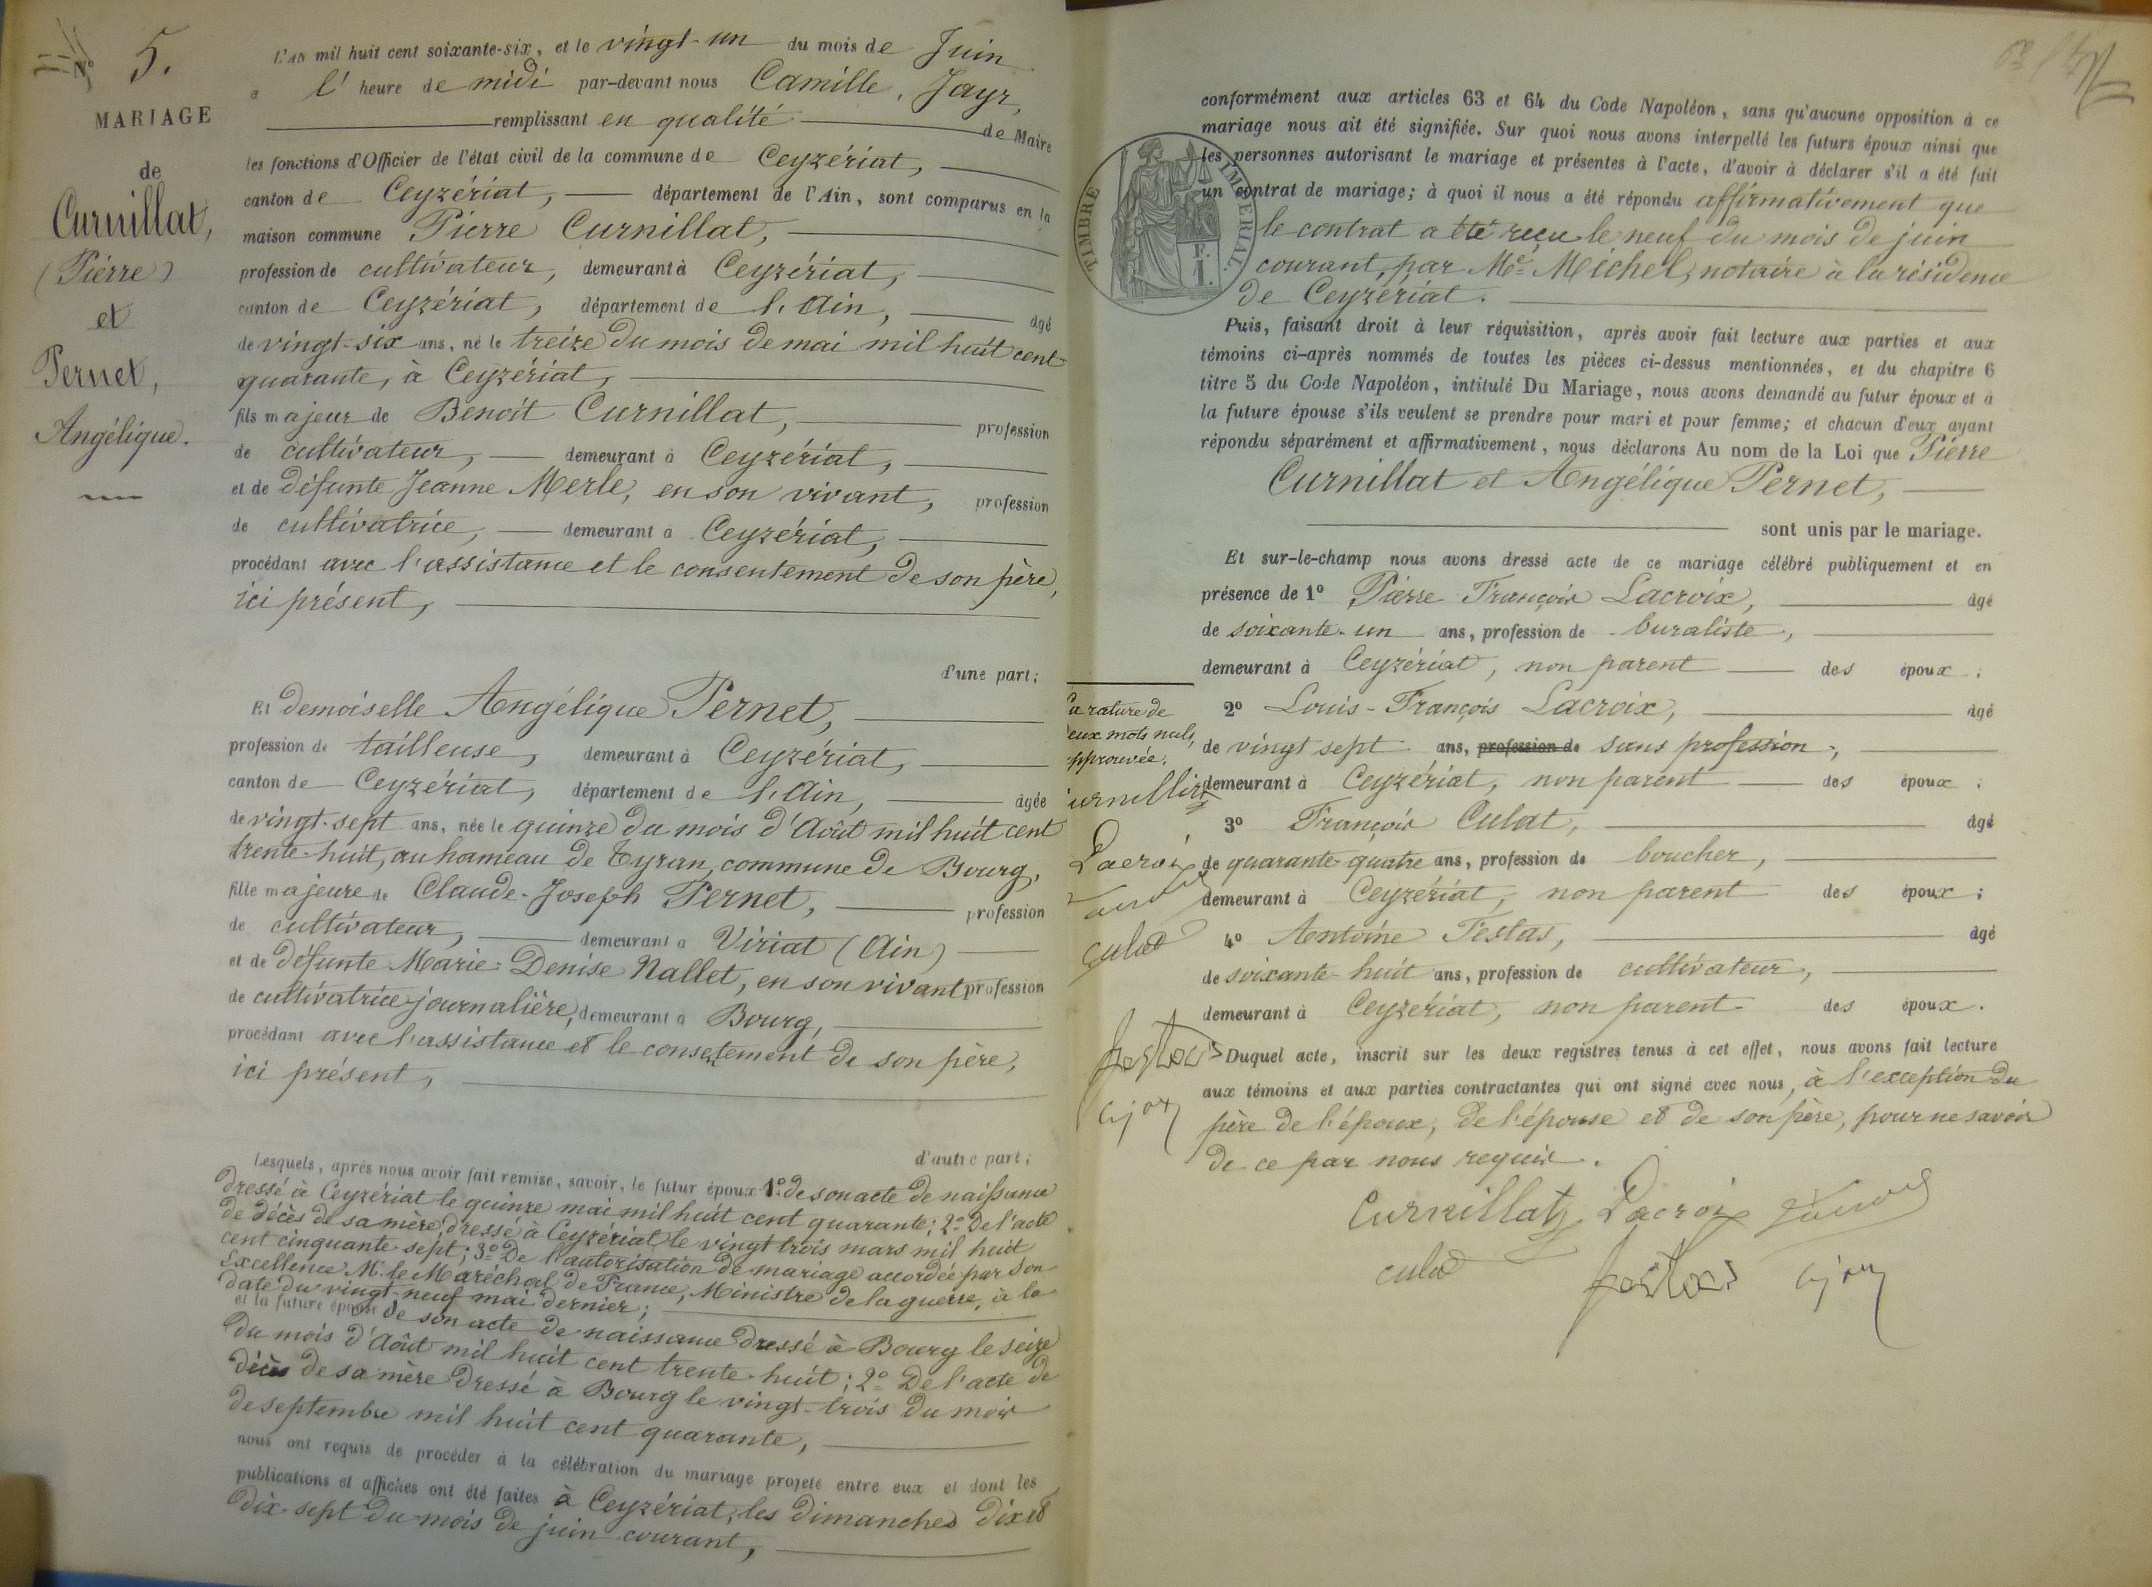 N° 5.
MARIAGE
de
Curnillat,
(Pierre)
et
Pernet,
Angélique.
L'an mil huit cent soixante-six, et le vingt-un du mois de Juin
a l'heure de midi par-devant nous Camille, Jayr,
remplissant en qualité de Maire
les fonctions d'Officier de l'état civil de la commune de Ceyzériat,
canton de Ceyzériat, département de l'Ain, sont comparus en la
maison commune Pierre Curnillat,
profession de cultivateur, demeurant à Ceyzériat,
canton de Ceyzériat, département de l'Ain, âgé
de vingt-six ans, né le treize du mois de mai mil huit cent
quarante, à Ceyzériat,
fils majeur de Benoît Curnillat, profession
de cultivateur, demeurant à Ceyzériat,
et de défunte Jeanne Merle, en son vivant, profession
de cultivatrice, demeurant à Ceyzériat,
procédant avec l'assistance et le consentement de son père,
ici présent,
d'une part;
Et demoiselle Angélique Pernet,
profession de tailleuse, demeurant à Ceyzériat,
canton de Ceyzériat, département de l'Ain, âgée
de vingt-sept ans, née le quinze du mois d'Août mil huit cent
trente-huit, au hameau de Tyran, commune de Bourg,
fille majeure de Claude-Joseph Pernet, profession
de cultivateur, demeurant à Viriat (Ain)
et de défunte Marie-Denise Nallet, en son vivant profession
de cultivatrice journalière, demeurant à Bourg,
procédant avec l'assistance et le consetement de son père,
ici présent,
d'autre part;
Lesquels, après nous avoir fait remise, savoir, le futur époux 1° de son acte de naissance
dressé à Ceyzériat le quinze mai mil huit cent quarante; 2° De l'acte
de décès de sa mère, dressé à Ceyzériat le vingt trois mars mil huit
cent cinquante-sept; 3° De l'autorisation de mariage accordée par Son
Excellence Mr. le Maréchal de France, Ministre de la guerre, à la
date du vingt-neuf mai dernier;
et la future épouse de son acte de naissance dressé à Bourg le seize
du mois d'Août mil huit cent trente-huit; 2° De l'acte de
décès de sa mère dressé à Bourg le vingt-trois du mois
de septembre mil huit cent quarante,
nous ont requis de procéder à la célébration du mariage projeté entre eux et dont les
publications et affiches ont été faites à Ceyzériat, les dimanches dix et
dix-sept du mois de juin courant,
TIMBRE IMPÉRIAL
F.
1.
conformément aux articles 63 et 64 du Code Napoléon, sans qu'aucune opposition à ce
mariage nous ait été signifiée. Sur quoi nous avons interpellé les futurs époux ainsi que
les personnes autorisant le mariage et présentes à l'acte, d'avoir à déclarer s'il a été fait
un contrat de mariage; à quoi il nous a été répondu affirmativement que
le contrat a été reçu le neuf du mois de juin
courant, par Me. Michel, notaire à la résidence
de Ceyzériat.
Puis, faisant droit à leur réquisition, après avoir fait lecture aux parties et aux
témoins ci-après nommés de toutes les pièces ci-dessus mentionnées, et du chapitre 6
titre 5 du Code Napoléon, intitulé Du Mariage, nous avons demandé au futur époux et à
la future épouse s'ils veulent se prendre pour mari et pour femme; et chacun d'eux ayant
répondu séparément et affirmativement, nous déclarons Au nom de la Loi que Pierre
Curnillat et Angélique Pernet,
sont unis par le mariage.
Et sur-le-champ nous avons dressé acte de ce mariage célébré publiquement et en
présence de 1° Pierre François Lacroix, âgé
de soixante-un ans, profession de buraliste,
demeurant à Ceyzériat, non parent des époux;
2° Louis-François Lacroix, âgé
de vingt sept ans, profession de sans profession,
demeurant à Ceyzériat, non parent des époux;
3° François Culat, âgé
de quarante-quatre ans, profession de boucher,
demeurant à Ceyzériat, non parent des époux;
4° Antoine Festas, âgé
de soixante-huit ans, profession de cultivateur,
demeurant à Ceyzériat, non parent des époux.
Duquel acte, inscrit sur les deux registres tenus à cet effet, nous avons fait lecture
aux témoins et aux parties contractantes qui ont signé avec nous, à l'exception du
père de l'époux, de l'épouse et de son père, pour ne savoir
de ce par nous requis.
La rature de
deux mots nuls
approuvée.
Curnillat
Lacroix
culat
festas
Curnillat Lacroix
culat festas